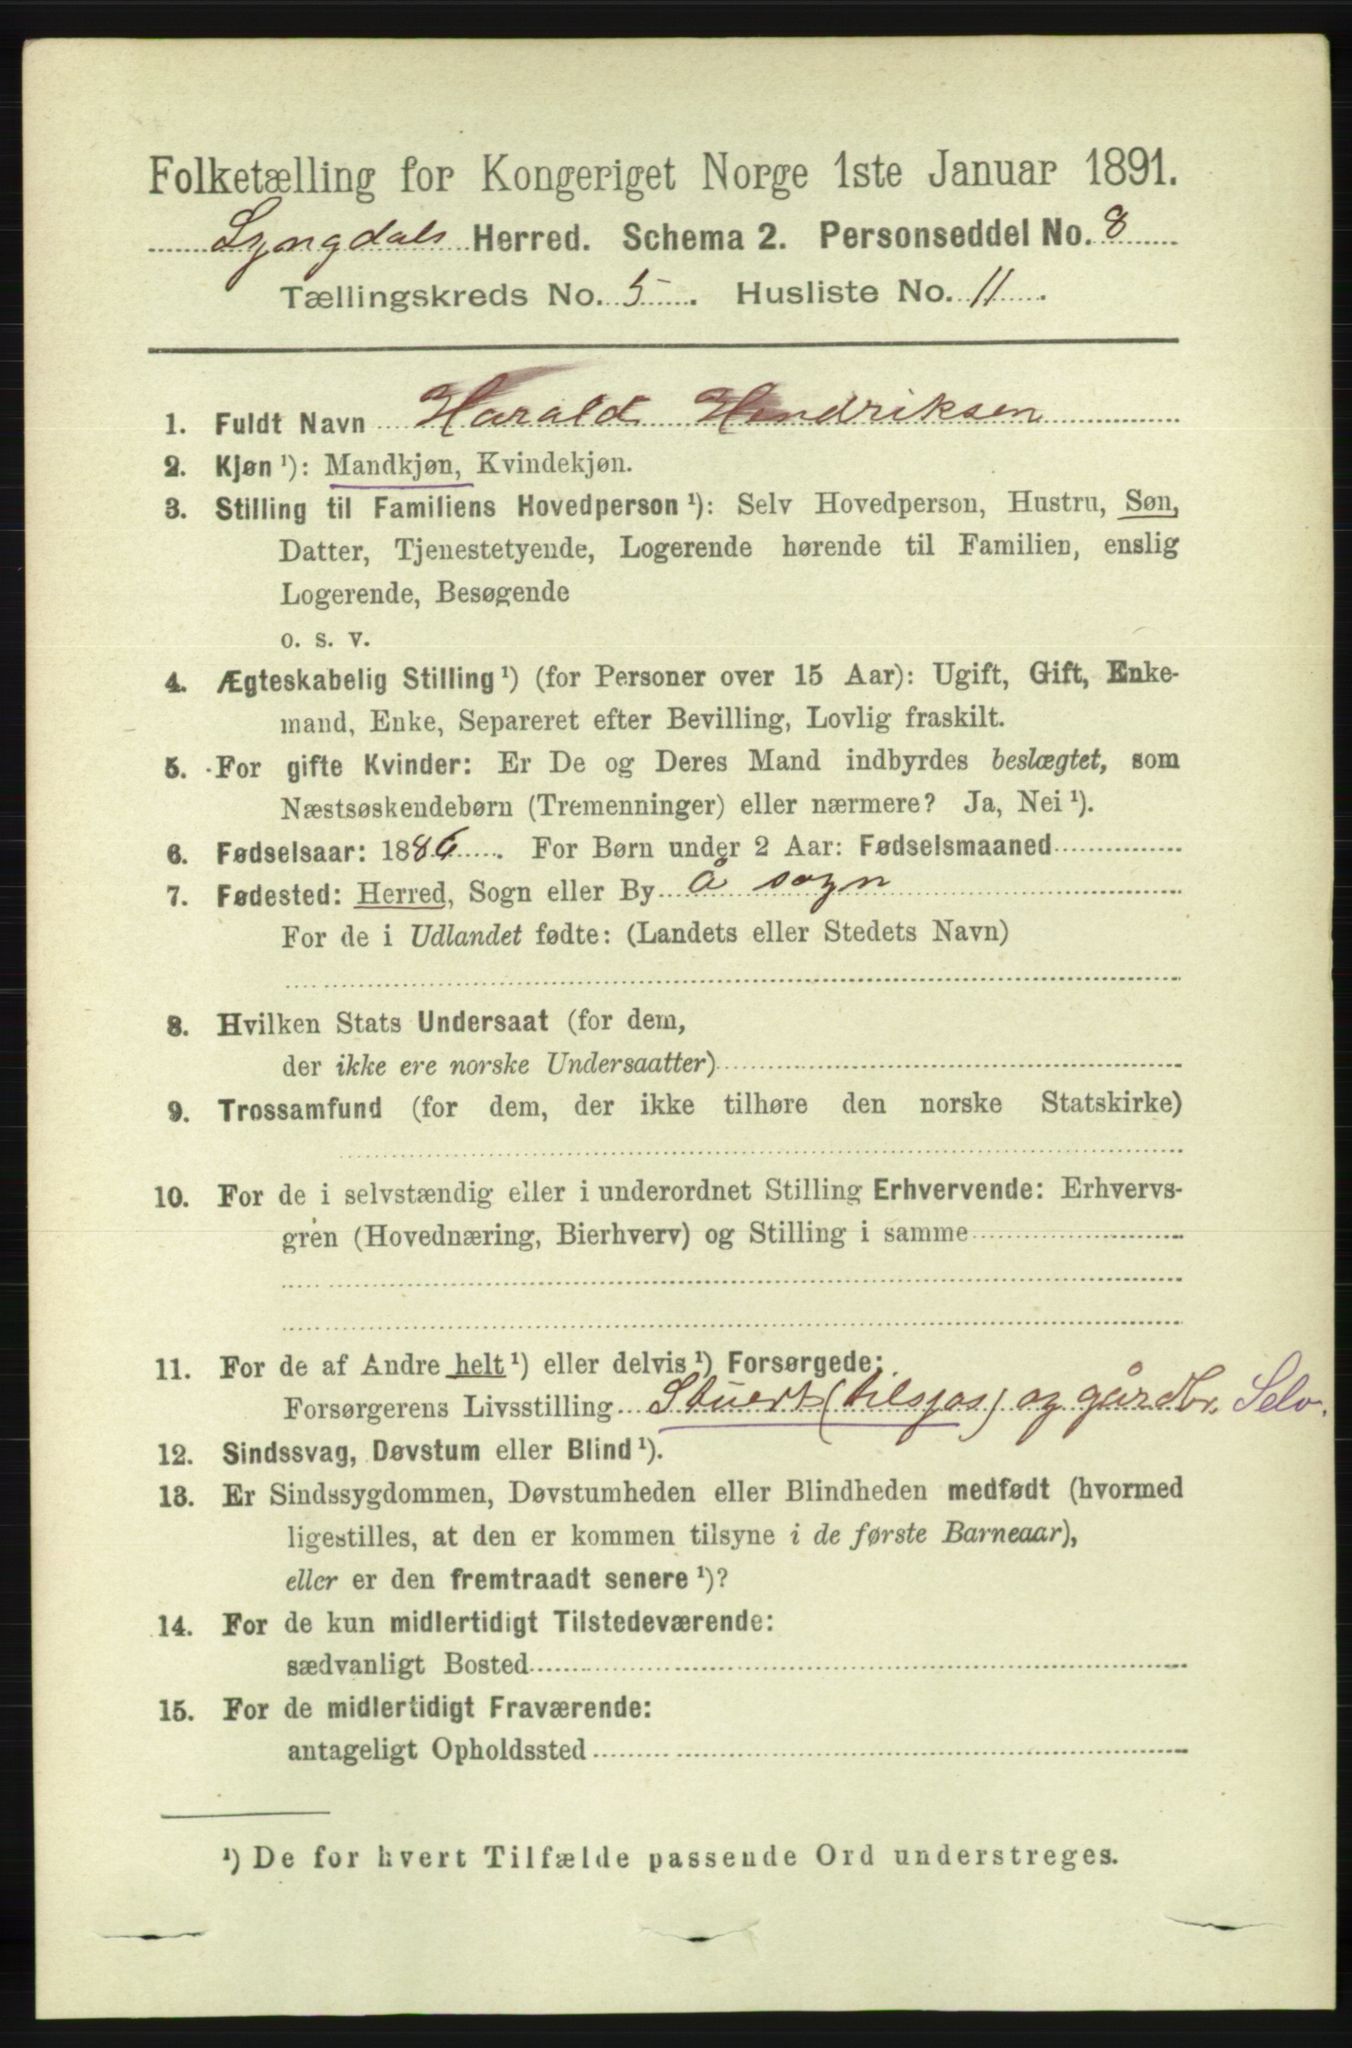 Folketælling for Kongeriget Norge 1ste Januar 1891.
Lyngdals Herred. Schema 2. Personseddel No. 8
Tællingskreds No. 5. Husliste No. 11.
1. Fuldt Navn Harald Hendriksen
2. Kjøn ¹): Mandkjøn, Kvindekjøn.
3. Stilling til Familiens Hovedperson ¹): Selv Hovedperson, Hustru, Søn,
Datter, Tjenestetyende, Logerende hørende til Familien, enslig
Logerende, Besøgende
o. s. v.
4. Ægteskabelig Stilling ¹) (for Personer over 15 Aar): Ugift, Gift, Enke-
mand, Enke, Separeret efter Bevilling, Lovlig fraskilt.
5. For gifte Kvinder: Er De og Deres Mand indbyrdes beslægtet, som
Næstsøskendebørn (Tremenninger) eller nærmere? Ja, Nei ¹).
6. Fødselsaar: 1886. For Børn under 2 Aar: Fødselsmaaned
7. Fødested: Herred, Sogn eller By Å sogn
For de i Udlandet fødte: (Landets eller Stedets Navn)
8. Hvilken Stats Undersaat (for dem,
der ikke ere norske Undersaatter)
9. Trossamfund (for dem, der ikke tilhøre den norske Statskirke)
10. For de i selvstændig eller i underordnet Stilling Erhvervende: Erhvervs-
gren (Hovednæring, Bierhverv) og Stilling i samme
11. For de af Andre helt ¹) eller delvis ¹) Forsørgede:
Forsørgerens Livsstilling Stuert (tilsjøs) og gårdbr. Selv.
12. Sindssvag, Døvstum eller Blind ¹).
13. Er Sindssygdommen, Døvstumheden eller Blindheden medfødt (hvormed
ligestilles, at den er kommen tilsyne i de første Barneaar),
eller er den fremtraadt senere ¹)?
14. For de kun midlertidigt Tilstedeværende:
sædvanligt Bosted
15. For de midlertidigt Fraværende:
antageligt Opholdssted
¹) De for hvert Tilfælde passende Ord understreges.